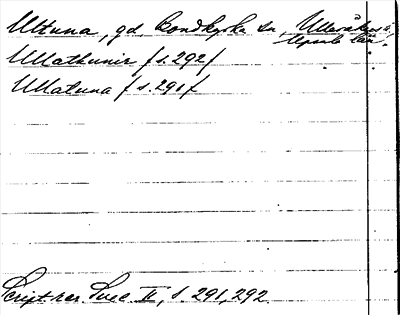 Ultuna, gd Bondkyrka sn, Ulleråkers h.
Upsala län.
Ullathunir /s.292/
Ullatuna /s.291/
Script. rer. Suec. II, s. 291, 292.